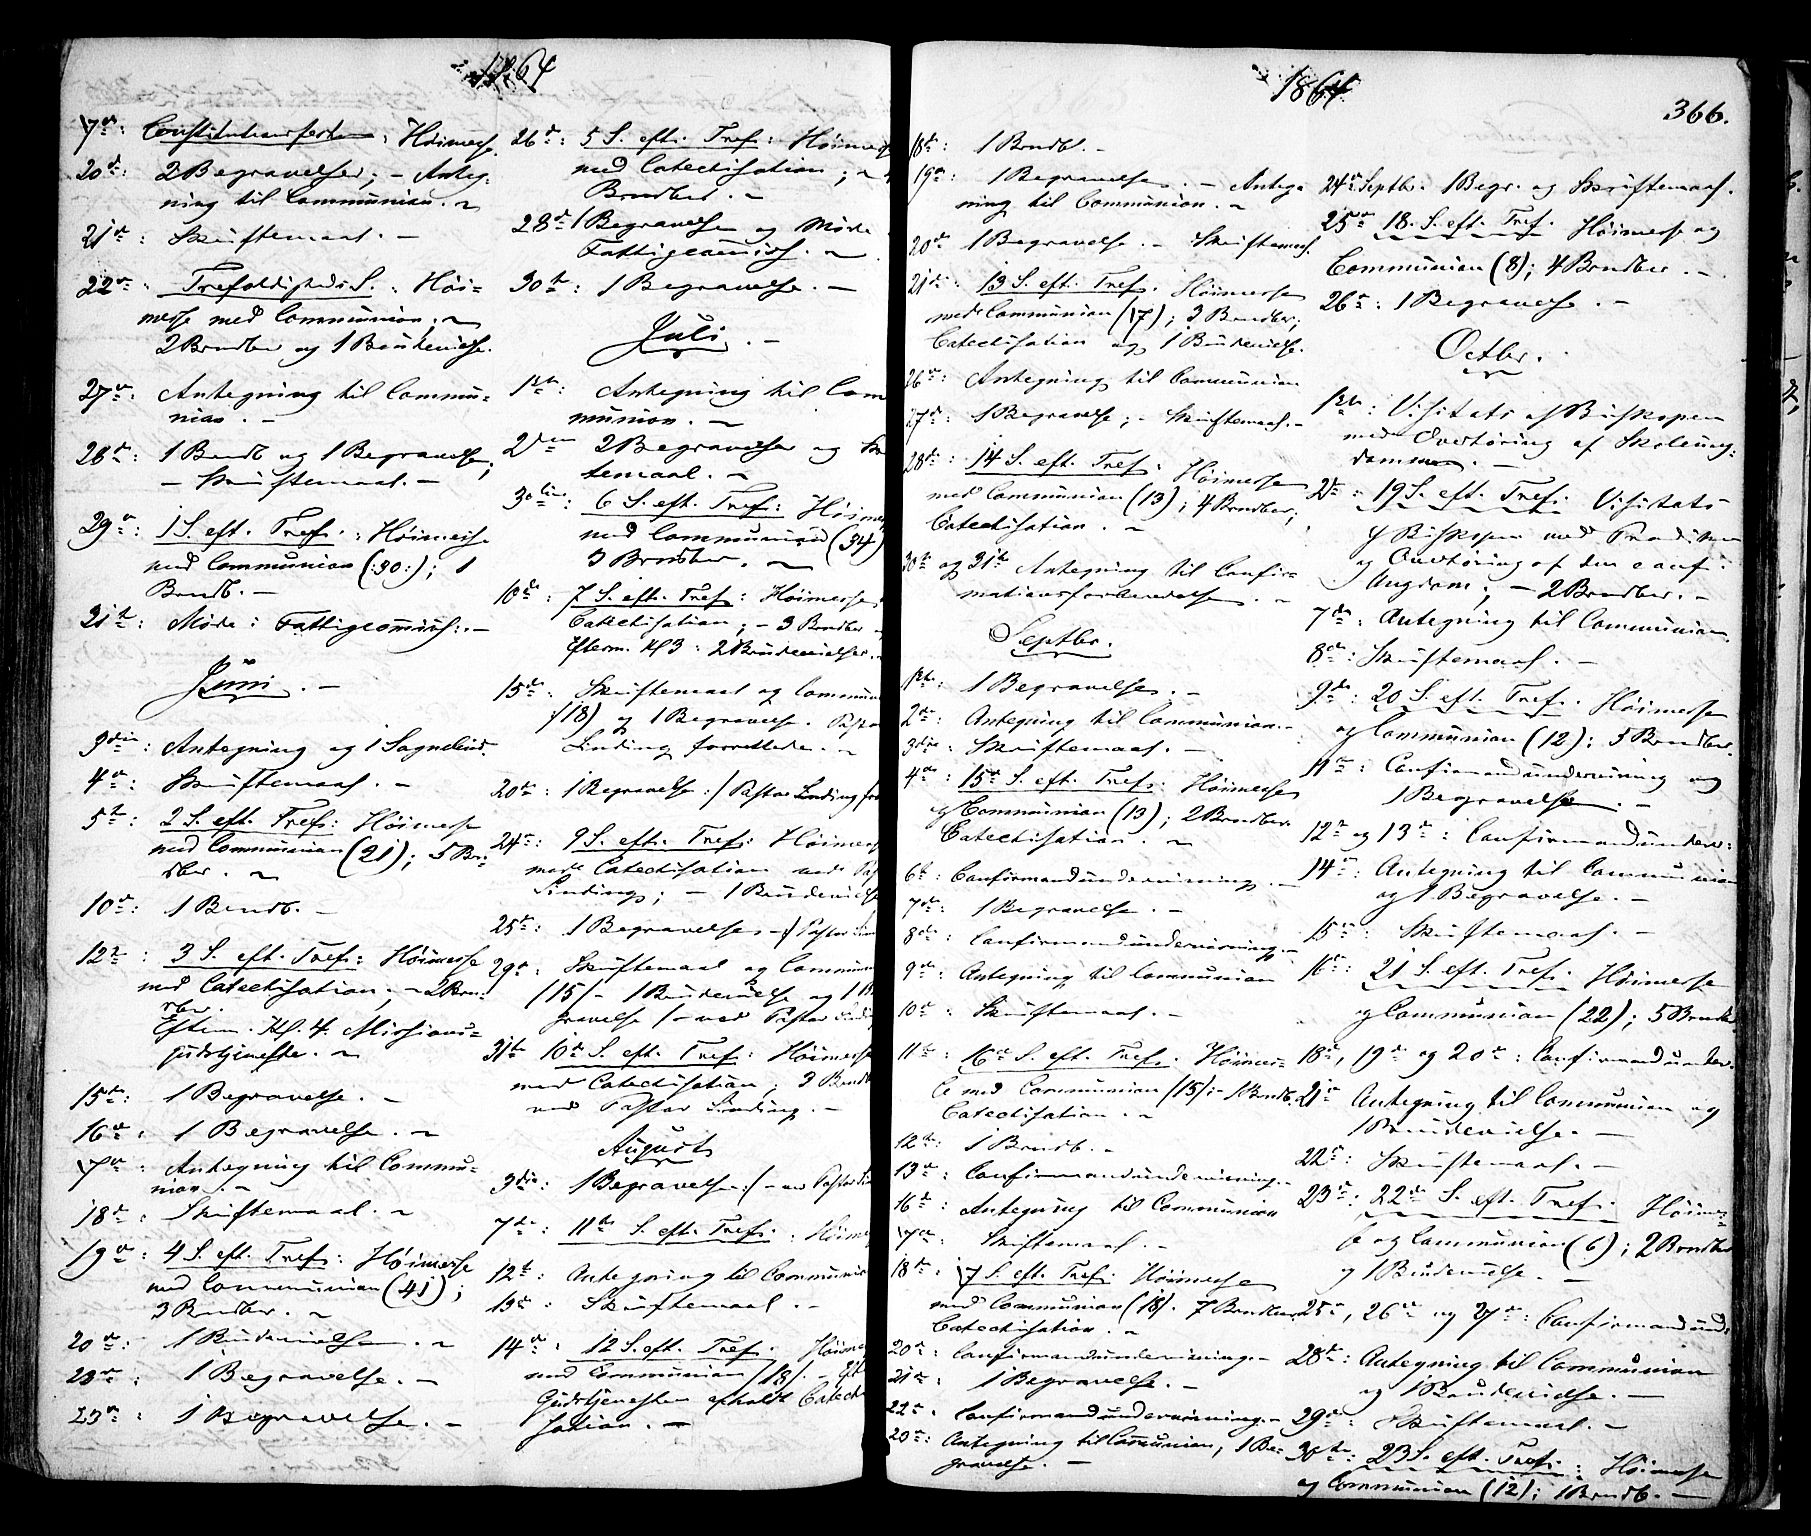 1864
17de: Constitutionsfesten: Høimesse.
20de: 2 Begravelser; - Anteg-
ning til Communion. -
21de: Skriftemaal. -
22de: Trefoldigheds S.: Høi-
messe med Communion; -
2 Barndb og 1 Brudevielse.
27de: Antegning til Commu-
nion. -
28de: 1 Barndb og 1 Begravelse;
- Skriftemaal. -
29de: 1 S. eft. Tref.: Høimesse
med Communion (:30:); 1
Barndb. -
31te: Møde i Fattigcommiss: -
Juni. -
3die: Antegning og 1 Sognebud.
4de: Skriftemaal. -
5te: 2 S. eft. Tref.: Høimesse
med Communion (21); 5 Br-
dber. -
10de: 1 Barndb. -
12te: 3 S. eft. Tref.: Høimesse
med Catechisation; - 2 Barn-
dber.
Efterm. Kl. 4. Missions-
gudstjeneste. -
15de: 1 Begravelse. -
16de: 1 Begravelse. -
17de: Antegning til Commu-
nion. -
18de: Skriftemaal. -
19de: 4 S. eft. Tref.: Høimesse
med Communion (41);
3 Barndber. -
20de: 1 Brudevielse. -
23de: 1 Begravelse. -
25de: 1 Begravelse. -
26de: 5 S. eft. Tref.: Høimesse
med Catechisation; -
Barndber. -
28de: 1 Begravelse og Møde
Fattigcommiss. -
30te: 1 Begravelse. -
Juli. -
1ste: Antegning til Com
munion. -
2den 2 Begravelser og Skr
temaal. -
3die: 6 S. eft. Tref.: Høimes
med Communion (34)
3 Barndber. -
10de: 7 S. eft. Tref.: Høimesse
Catechisation; - 3 Barndber -
Efterm. Kl 3: 2 Brudevielser. -
15de: Skriftemaal og Commun
(18) og 1 Begravelse. Pastor
Sinding forrettede. -
20de: 1 Begravelse :/ Pastor Sinding for
24de: 9 S. eft. Tref.: Høimes
med Catechisation ved Past
Sinding; - 1 Brudevielse
25de: 1 Begravelse -/ Pastor Sin
29de: Skriftemaal og Commun
/15/- 1 Brudevielse og 1 Be
gravelse /- ved Pastor Sindi
31te 10de S. eft. Tref.: Høimesse
med Catechisation; 3 Barndb
ved Pastor Sinding. -
August
3die: 1 Begravelse :/- ved Pastor Sin
7de: 11te S. eft. Tref.: Høimes
12te: Antegning til Communion
13de: Skriftemaal. -
14de: 12 S. eft. Tref. Høimes
med Communion /18/. - Efter
Gudstjenesten afholdt Catechi
sation. -
1864.
366.
18de: 1 Barndb. -
19de: 1 Begravelse. - Anteg-
ning til Communion. -
20de 1 Begravelse. - Skriftemaal.
21de: 13 S. eft. Tref. Høimesse
med Communion (17); 3 Barndber;
Catechisation og 1 Brudevielse.
26de: Antegning til Communion
27de: 1 Begravelse; - Skriftemaal. -
28de: 14 S. eft. Tref. Høimesse
med Communion (13); 4 Barndber;
Catechisation. -
30te og 31te Antegning til Confir-
mationsforberedelse. -
Septbr.
1ste: 1 Begravelse. -
2den: Antegning til Communion. -
3die: Skriftemaal. -
4de: 15de S. eft. Tref.: Høimesse
og Communion (13); 2 Barndber
Catechisation. -
6te: Confirmandundervisning. -
7de: 1 Begravelse. -
8de: Confirmandundervisning. -
9de: Antegning til Communion
10de: Skriftemaal. -
11te: 16de S. eft. Tref.: Høimes-
se med Communion /15/:- 1 Barndb.
Catechisation. -
12te: 1 Barndb. -
13de: Confirmandundervisning. -
16de: Antegning til Communion
17de: Skriftemaal. -
18de: 17 S. eft. Tref: Høimesse
med Communion (18). 7 Barndber.
Catechisation. -
20de: Confirmandundervisning. -
21de: 1 Begravelse. -
22de: Confirmandundervisning. -
23de: Antegning til Communion, 1 Be-
gravelse. -
24de Septbr: 1 Begr. og Skriftemaal.
25de 18. S. eft. Tref. Høimesse og
Communion (8); 4 Barndber. -
26de: 1 Begravelse. -
Octbr.
1ste: Visitats af Biskopen
med Overhøring af Skoleung-
dommen. -
2den: 19 S. eft. Tref. Visitats
af Biskopen med Prædiken
og Overhøring af den conf.
Ungdom; - 2 Barndber. -
7de: Antegning til Communion.
8de: Skriftemaal. -
9de: 20 S. eft. Tref. Høimesse
og Communion (12); 3 Barndber.
11te: Confirmandundervisning og
1 Begravelse. -
12te og 13de: Confirmandunderv:
14de: Antegning til Communion
og 1 Begravelse. -
15de: Skriftemaal. -
16de: 21 S. eft. Tref. Høimesse
og Communion (22); 5 Barndb
18de, 19de og 20de: Confirmandunder.
21de Antegning til Communion og
1 Brudevielse. -
22de: Skriftemaal. -
23de: 22de S. eft. Tref. Høimes-
se og Communion (6); 2 Barndber
og 1 Brudevielse. -
25de, 26de og 27de: Confirmandund:
28de: Antegning til Communion
og 1 Brudevielse. -
29de: Skriftemaal. -
30te: 23 S. eft. Tref.: Høimesse
og Communion (12); 1 Barndb. -